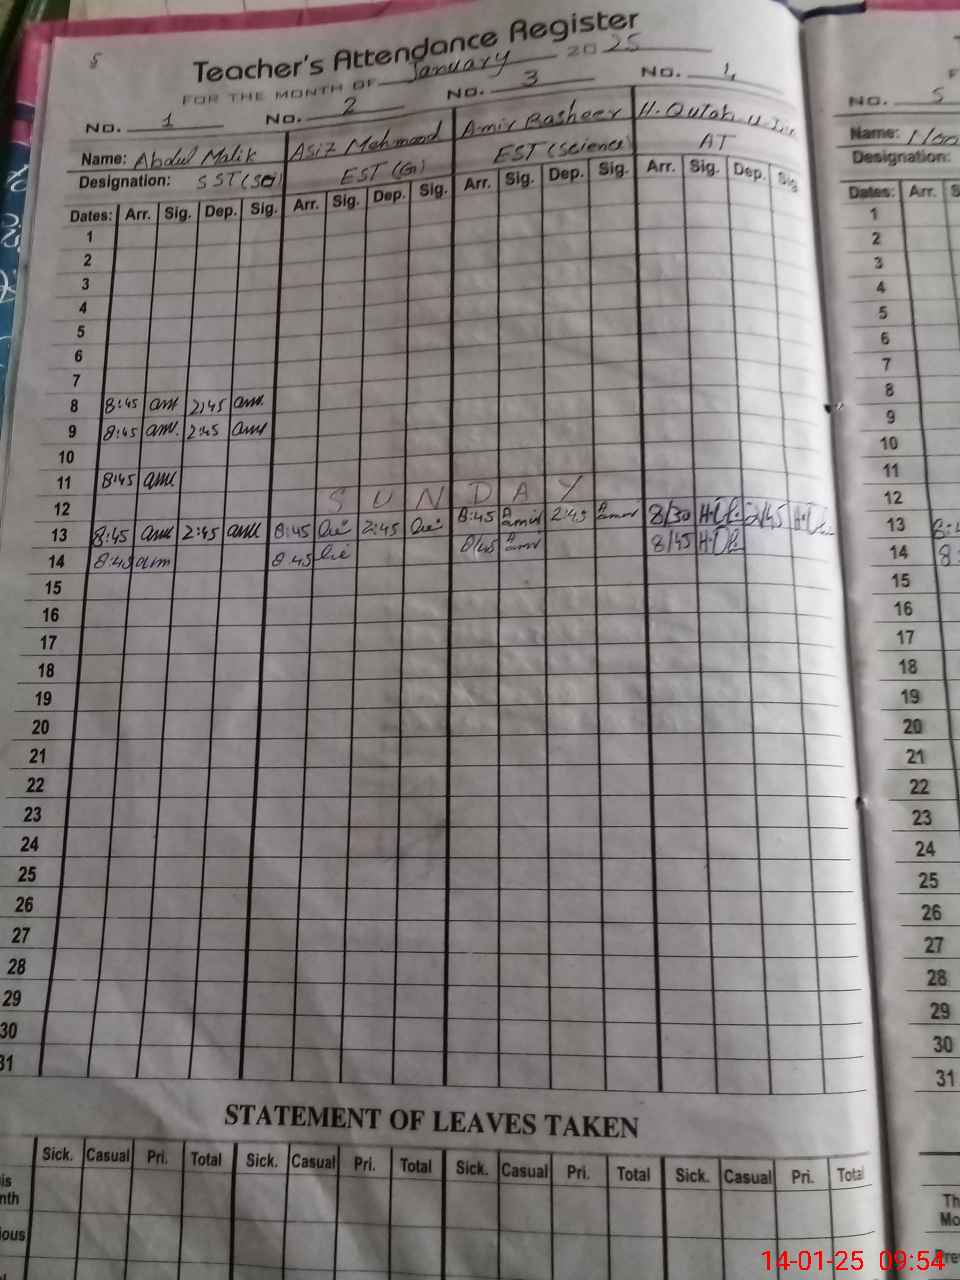 Teacher's Attendance Register
FOR THE MONTH OF January 2025
No. 1 No. 2 No. 3 No. 4
Name: Abdul Malik Asiz Mehmood Amir Rasheer H. Qutab u
Designation: SST (Sci) EST (G) EST (Science) AT
Dates: Arr. Sig. Dep. Sig. Arr. Sig. Dep. Sig. Arr. Sig. Dep. Sig. Arr. Sig. Dep. Sig.
1
2
3
4
5
6
7
8 8:45 2:45
9 8:45 2:45
10
11 8:45
12 SUNDAY
13 8:45 2:45 8:45 2:45 8:45 2:45 8/30 2/45
14 8:45 8:45 8/45 8/45
15
16
17
18
19
20
21
22
23
24
25
26
27
28
29
30
31
STATEMENT OF LEAVES TAKEN
Sick. Casual Pri. Total Sick. Casual Pri. Total Sick. Casual Pri. Total Sick. Casual Pri. Total
No. 5
Name:
Designation:
Dates: Arr.
1
2
3
4
5
6
7
8
9
10
11
12
13
14
15
16
17
18
19
20
21
22
23
24
25
26
27
28
29
30
31
14-01-25 09:54